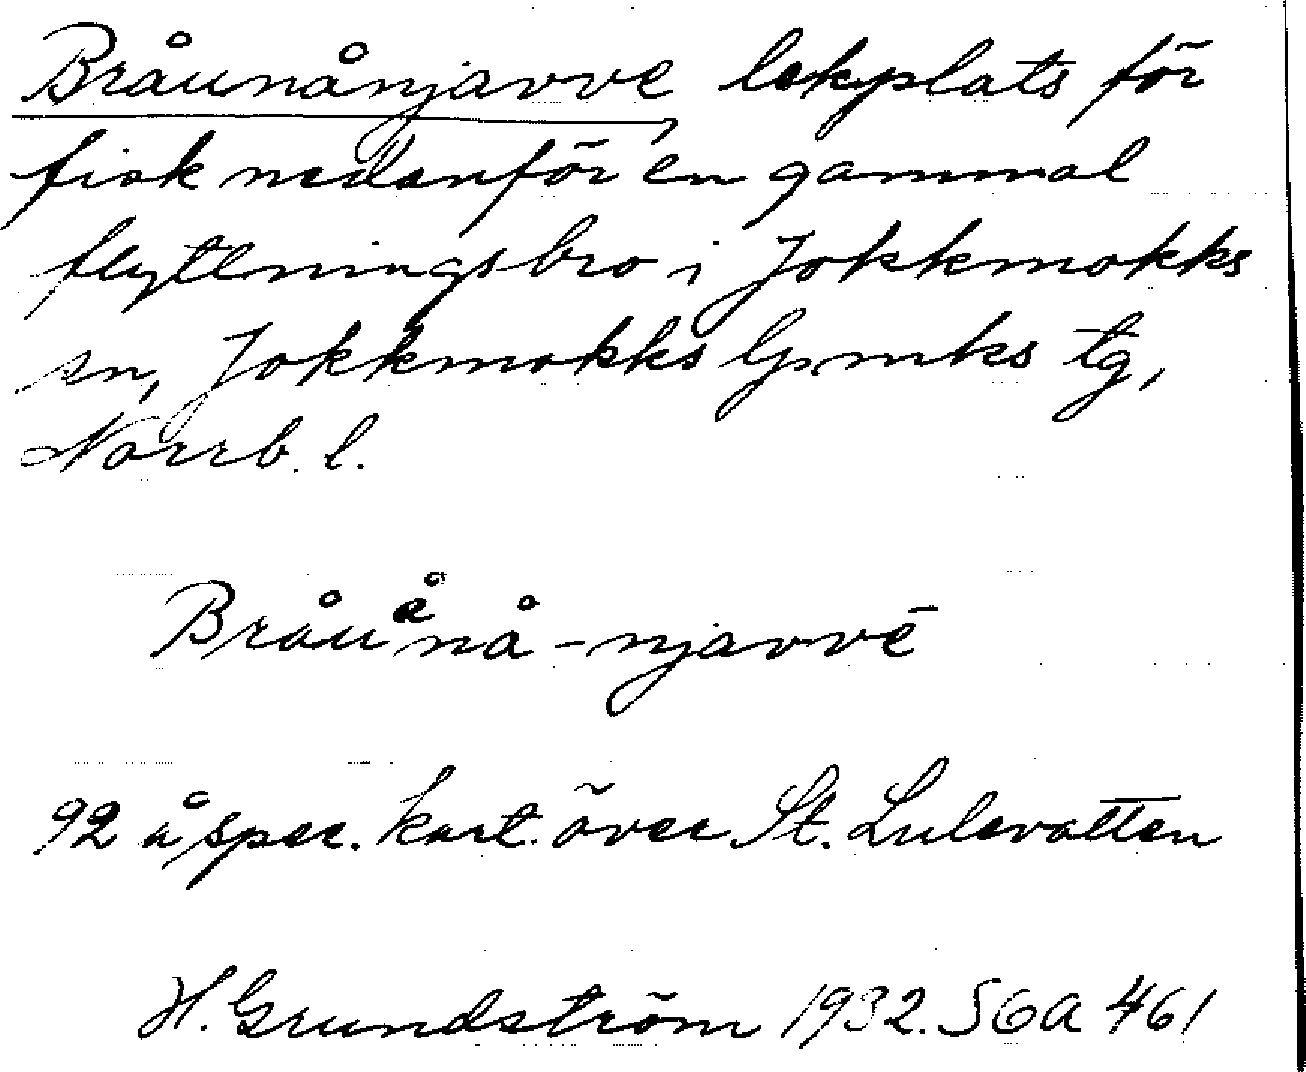 Bråunånjavve, lekplats för
fisk nedanför en gammal
flyttningsbro i Jokkmokks
sn, Jokkmokks lpmks tg,
Norrb. l.
Bråuᵉ̊nå-njavvē
92 å spec. kart. över St. Lulevatten
H. Grundström 1932. SGA 461